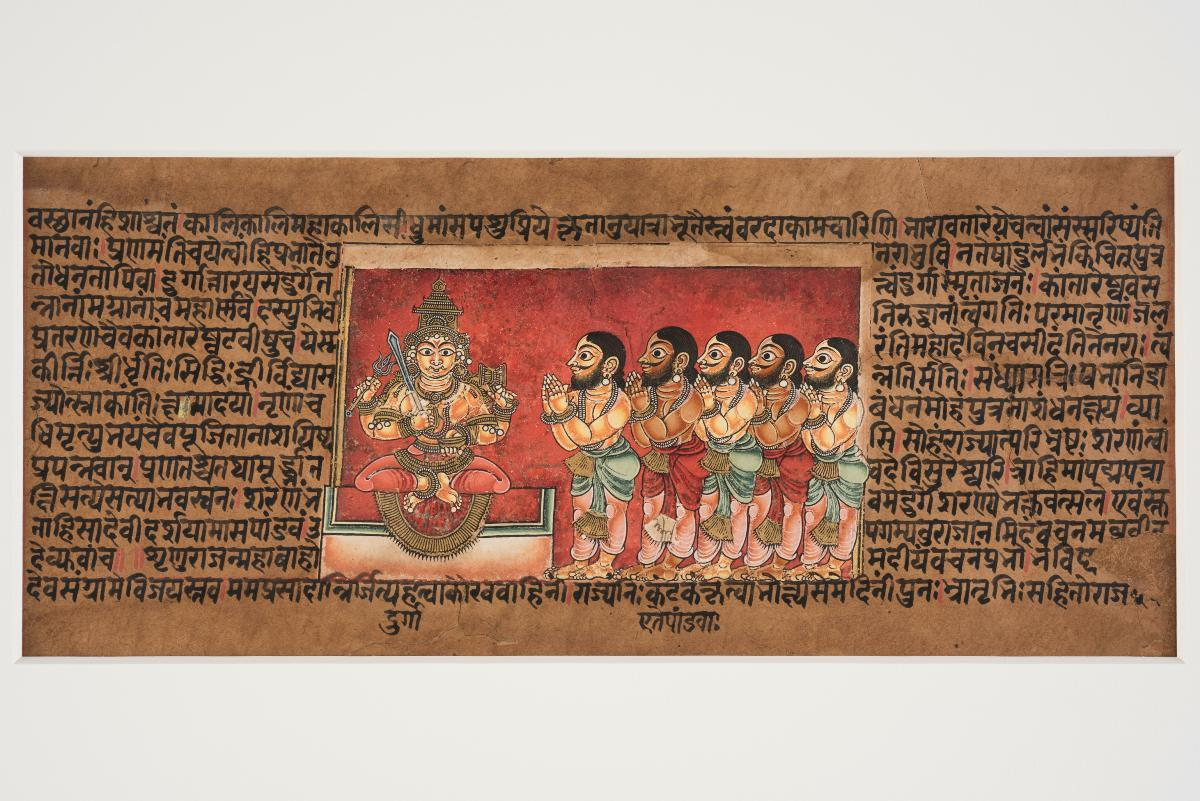 वस्छानंहिशाश्वतं।कालिकालिमहाकालिसीधुमांसपशुप्रिये।कृतानुयात्राभूतैस्त्वंवरदाकामचारिणि।भारावतारेयेचत्वांसंस्मरिष्यंति
मानवाः।प्रणमंतिचयेत्वांहिप्रभातेतु नराभुवि।नतेषांदुर्लभंकिंचित्पुत्र
तोधनतोपिवा।दुर्गात्तारयसेदुर्गेत त्त्वंदुर्गास्मृताजनैः।कांतारेष्ववस
न्नानांमग्नानांचमहार्णवे।दस्युभिर्वा निरुद्धानांत्वंगतिःपरमानृणां।जल
प्रतरणेचैवकांतारेष्वटवीषुच।येस्म रंतिमहादेवित्वांनचसीदंतितेनराः।त्वं
कीर्त्तिःश्रीर्धृतिःसिद्धिःह्रीर्विद्यासं ततिर्मतिः।संध्यारात्रिःप्रभानिद्रा
ज्योत्स्नाकांतिःक्षमादया।नृणांच बंधनंमोहंपुत्रनाशंधनक्षयं।व्या
धिंमृत्युंभयंचैवपूजितानाशयिष्य सि।सोहंराज्यात्परिभ्रष्टःशरणंत्वां
प्रपन्नवान्।प्रणतश्चतथामूर्द्ध्नात वदेविसुरेश्वरि।त्राहिमांपद्मपत्रा
क्षिसत्येसत्याभवस्वनः।शरणंभ वमेदुर्गेशरण्येभक्तवत्सले।एवंस्तु
ताहिसादेवीदर्शयामासपांडवं।उ पगम्यतुराजानमिदंवचनमब्रवीत
देव्युवाच॥शृणुराजन्महाबाहो मदीयंवचनंप्रभो।भविष्
देवसंग्रामेविजयस्तव।ममप्रसादान्निर्जित्यहत्वाकौरववाहिनीं।राज्यंनिःकंटकंकृत्वाभोक्ष्यसेमेदिनींपुनः।भ्रातृभिःसहितोराज
दुर्गा एतेपांडवाः